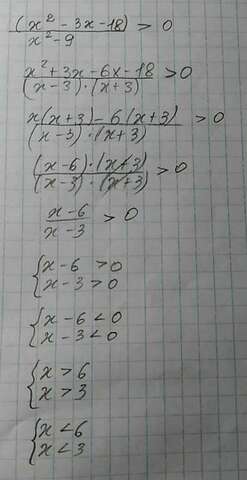 (x² - 3x - 18) / x² - 9 > 0
x² + 3x - 6x - 18 / (x - 3) · (x + 3) > 0
x(x + 3) - 6(x + 3) / (x - 3) · (x + 3) > 0
(x - 6) · (x + 3) / (x - 3) · (x + 3) > 0
x - 6 / x - 3 > 0
{ x - 6 > 0
x - 3 > 0
{ x - 6 < 0
x - 3 < 0
{ x > 6
x > 3
{ x < 6
x < 3